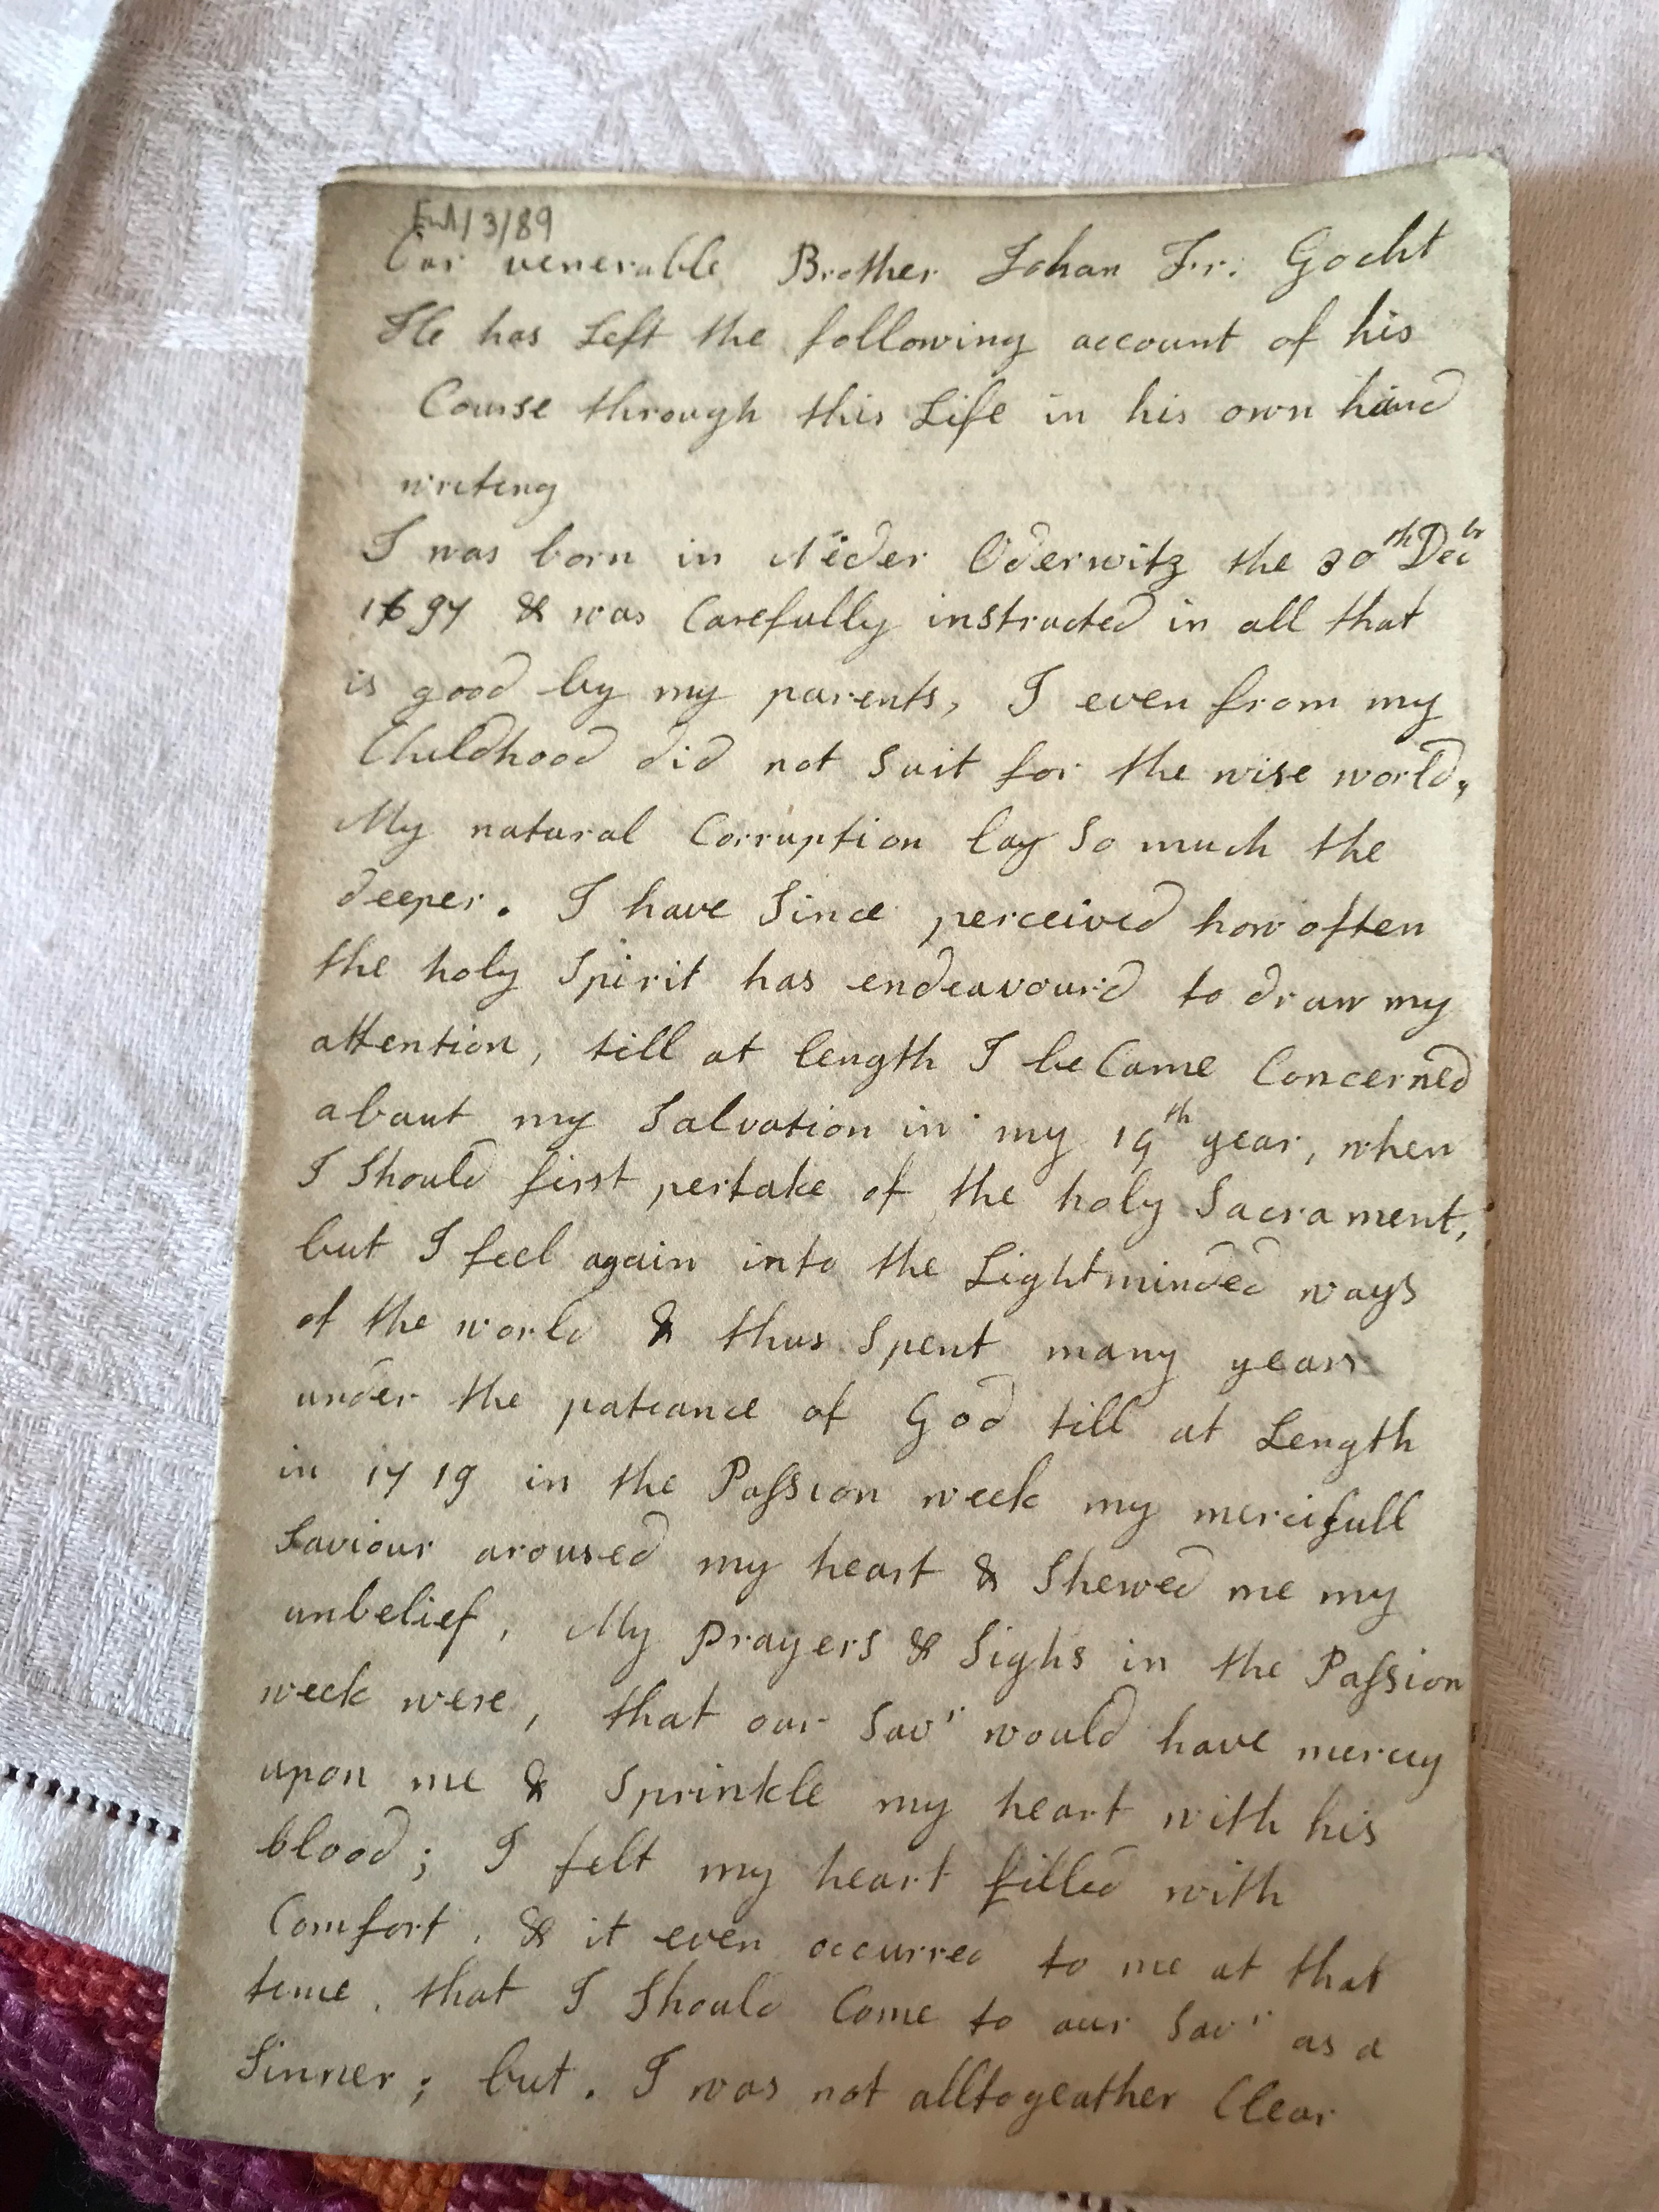 /3/89
Our venerable Brother Johan Fr: Gocht
He has Left the following account of his
Course through this Life in his own hand
writeng
I was born in Nieder Oderwitz the 30th Decbr
1697 & was Carefully instructed in all that
is good by my parents, I even from my
Childhood did not Suit for the wise world,
My natural Corruption lay So much the
deeper. I have Since perceived how often
the holy Spirit has endeavour'd to draw my
attention, till at length I be Came Concerned
about my Salvation in my 19th year, when
I Should first pertake of the holy Sacrament,
but I feel again into the Lightminded ways
of the world & thus Spent many years
under the pateance of God till at Length
in 1719 in the Paſsion week my mercifull
Saviour aroused my heart & Shewed me my
unbelief, My Prayers & Sighs in the Paſsion
week were, that our Savr would have mercy
upon me & Sprinkle my heart with his
blood; I felt my heart filled with
Comfort, & it even occurred to me at that
teme, that I Should Come to our Savr as a
Sinner; but. I was not alltogeather Clear